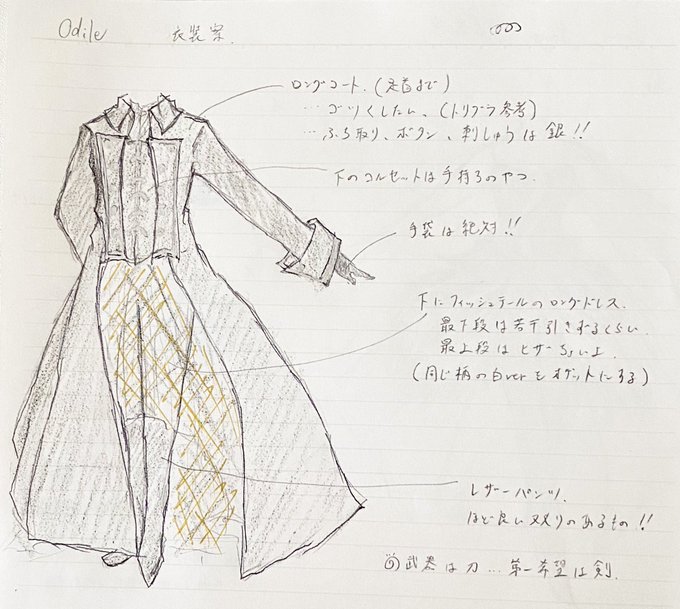 Odile 衣装案.
ロングコート.(足首まで)
…ゴツくしたい、(トリブラ参考)
…ふち取り、ボタン、刺しゅうは銀!!
下のコルセットは手持ちのやつ.
手袋は絶対!!
下にフィッシュテールのロングドレス.
最下段は若干引きずるくらい.
最上段はヒザちょい上.
(同じ柄の白verもオデットにする)
レザーパンツ.
ほど良い テリのあるもの!!
武器は刀…第一希望は剣.